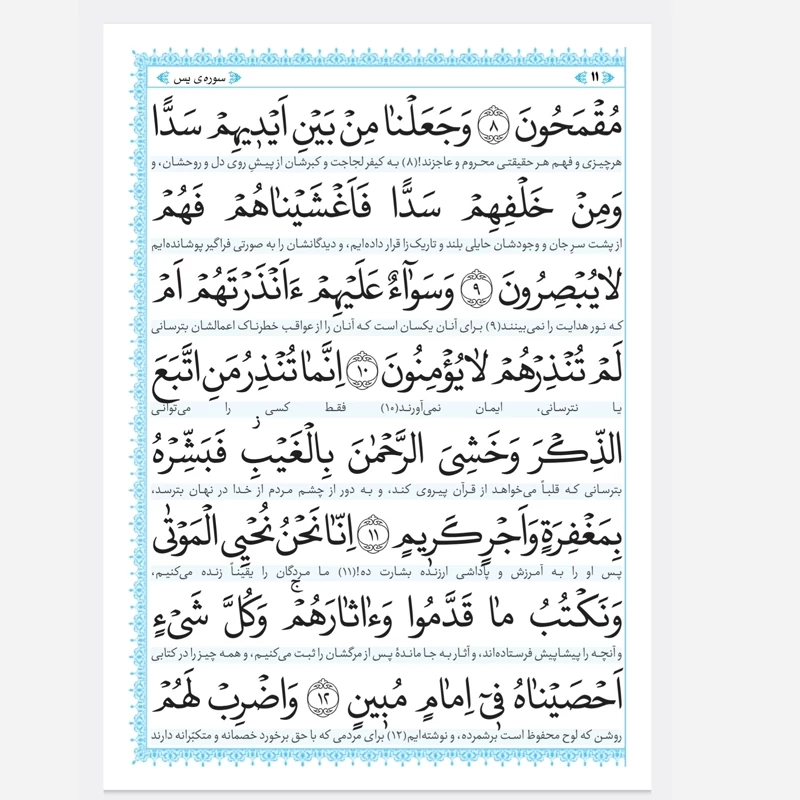 ۱۱ سوره‌ی یس
مُقْمَحُونَ ﴿۸﴾ وَجَعَلْنا مِنْ بَيْنِ اَيْدِيهِمْ سَدًّا
هرچیزی و فهم هر حقیقتی محروم و عاجزند!(۸) به کیفر لجاجت و کبرشان از پیشِ روی دل و روحشان، و
وَمِنْ خَلْفِهِمْ سَدًّا فَاَغْشَيْناهُمْ فَهُمْ
از پشت سرِ جان و وجودشان حایلی بلند و تاریک‌زا قرار داده‌ایم، و دیدگانشان را به صورتی فراگیر پوشانده‌ایم
لايُبْصِرُونَ ﴿۹﴾ وَسَوآءٌ عَلَيْهِمْ ءَاَنْذَرْتَهُمْ اَمْ
که نور هدایت را نمی‌بینند(۹) برای آنان یکسان است که آنان را از عواقب خطرناک اعمالشان بترسانی
لَمْ تُنْذِرْهُمْ لايُؤْمِنُونَ ﴿۱۰﴾ اِنَّما تُنْذِرُ مَنِ اتَّبَعَ
یا نترسانی، ایمان نمی‌آورند(۱۰) فقط کسی را می‌توانی
الذِّكْرَ وَخَشِىَ الرَّحْمٰنَ بِالْغَيْبِ ز فَبَشِّرْهُ
بترسانی که قلباً می‌خواهد از قرآن پیروی کند، و به دور از چشم مردم از خدا در نهان بترسد،
بِمَغْفِرَةٍ وَاَجْرٍ كَرِيمٍ ﴿۱۱﴾ اِنّا نَحْنُ نُحْيِي الْمَوْتٰى
پس او را به آمرزش و پاداشی ارزنده بشارت ده!(۱۱) ما مردگان را یقیناً زنده می‌کنیم،
وَنَكْتُبُ ما قَدَّمُوا وَءاثارَهُمْ ۚ وَكُلَّ شَىْءٍ
و آنچه را پیشاپیش فرستاده‌اند، و آثار به جا ماندهٔ پس از مرگشان را ثبت می‌کنیم، و همه چیز را در کتابی
اَحْصَيْناهُ فِىٓ اِمامٍ مُبِينٍ ﴿۱۲﴾ وَاضْرِبْ لَهُمْ
روشن که لوح محفوظ است برشمرده، و نوشته‌ایم(۱۲) برای مردمی که با حق برخورد خصمانه و متکبّرانه دارند